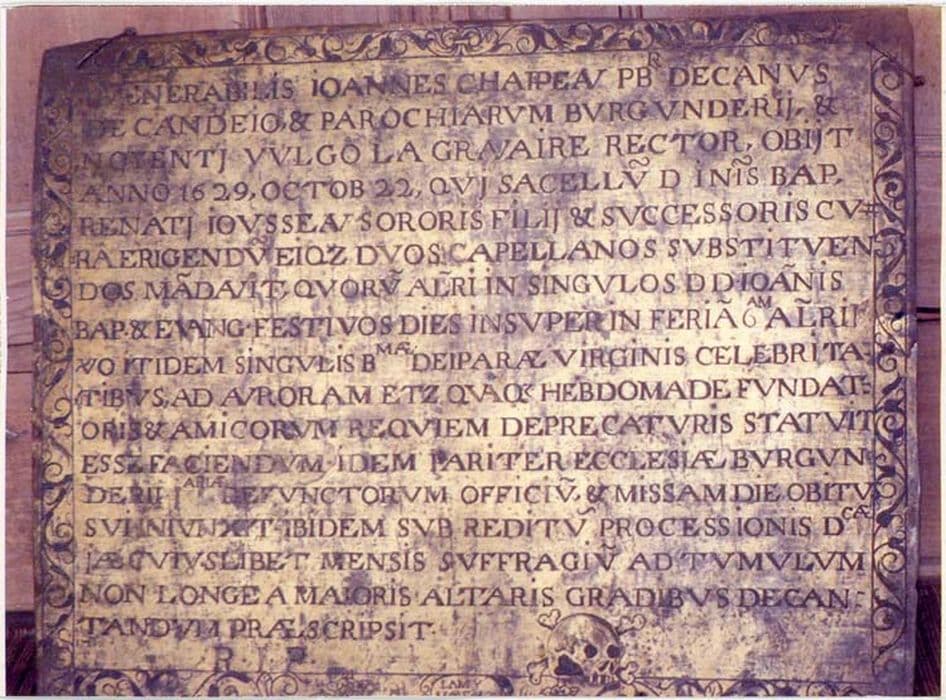 VENERABILIS IOANNES CHAPPEAV PBR DECANVS
DE CANDEIO, & PAROCHIARVM BVRGVNDERIJ, &
NOIENTJ VVLGO LA GRVAIRE RECTOR, OBIJT
ANNO 1629, OCTOB 22, QVJ SACELLṼ D INĨS BAP,
RENATJ IOVSSEAV SORORIS FILIJ & SVCCESSORIS CV=
RA ERIGENDṼ EIQZ DVOS CAPELLANOS SVBSTITVEN
DOS MÃDAVIT, QVORṼ AL̃RI IN SINGVLOS D D IOAÑIS
BAP. & EVANG. FESTIVOS DIES INSVPER IN FERIÃ 6AM AL̃RII
VO ITIDEM SINGVLIS BMÆ DEIPARÆ VIRGINIS CELEBRITA-
TIBVS, AD AVRORAM ETZ QVAQ HEBDOMADE FVNDAT=
ORIS & AMICORVM REQVIEM DEPRECATVRIS STATVIT
ESSE FACIENDVM IDEM PARITER ECCLESIÆ BVRGVN
DERII DEFVNCTORVM OFFICIṼ & MISSAM DIE OBITV
SVI INIVNXIT IBIDEM SVB REDITṼ PROCESSIONIS DCÆ
IÆ CVIVSLIBET MENSIS SVFFRAGIṼ AD TVMVLVM
NON LONGE A MAIORIS ALTARIS GRADIBVS DECAN=
TANDVM PRÆSCRIPSIT.
R I P
LAMY